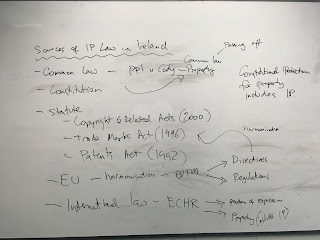 Sources of IP Law in Ireland
Common law
Passing off
- Common Law - ppl
Property
Constitutional Protection
for property
includes IP.
- Constitution
- Statute
- Copyright & Related Acts (2000)
- Trade Marks Act (1996)
Harmonisation
- Patents Act (1992)
Directives
- EU - harmonisation
Regulations
- International law - ECHR
freedom of expression
Property (includes IP)